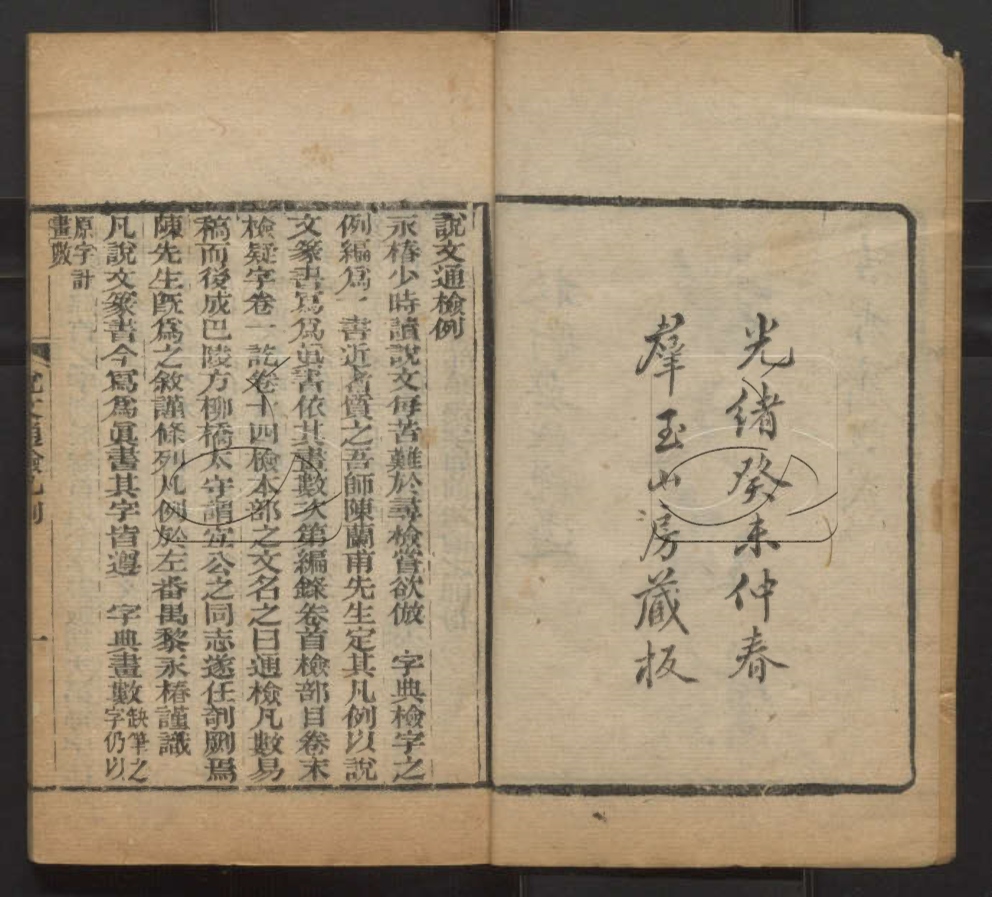 光緒癸未仲春
羣玉山房藏板
說文通檢例
永椿少時讀說文每苦難於尋檢嘗欲倣 字典檢字之
例編爲一書近者質之吾師陳蘭甫先生定其凡例以說
文篆書寫爲眞書依其畫數次第編錄卷首檢部目卷末
檢疑字卷一訖卷十四檢本部之文名之曰通檢凡數易
稿而後成巴陵方柳橋太守謂宜公之同志遂任剞劂焉
陳先生旣爲之敘謹條列凡例於左番禺黎永椿謹識
凡說文篆書今寫爲眞書其字皆遵 字典畫數缺筆之字仍以
原字計畫數
說文通檢凡例
一